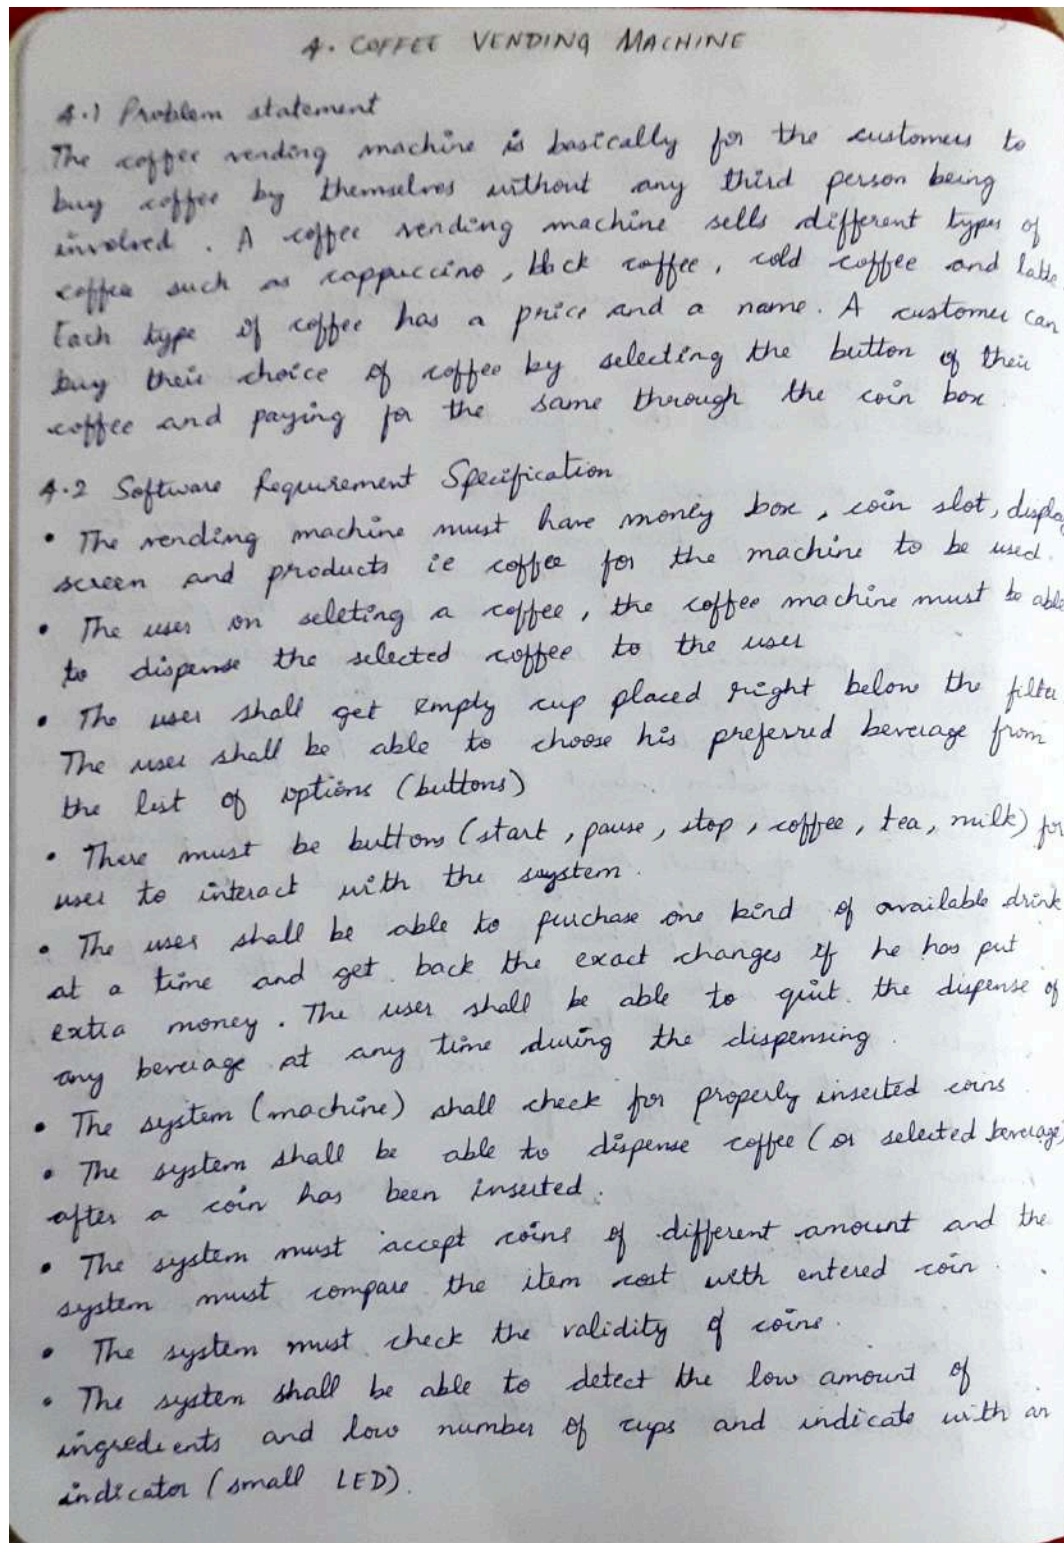 4. COFFEE VENDING MACHINE
4.1 Problem statement
The coffee vending machine is basically for the customers to
buy coffee by themselves without any third person being
involved. A coffee vending machine sells different types of
coffee such as cappuccino, black coffee, cold coffee and latte
Each type of coffee has a price and a name. A customer can
buy their choice of coffee by selecting the button of their
coffee and paying for the same through the coin box.
4.2 Software Requirement Specification
• The vending machine must have money box, coin slot, display
screen and products ie coffee for the machine to be used.
• The user on seleting a coffee, the coffee machine must be able
to dispense the selected coffee to the user
• The user shall get empty cup placed right below the filter
The user shall be able to choose his preferred beverage from
the list of options (buttons)
• There must be buttons (start, pause, stop, coffee, tea, milk) for
user to interact with the system.
• The user shall be able to purchase one kind of available drink
at a time and get back the exact changes if he has put
extra money. The user shall be able to quit the dispense of
any beverage at any time during the dispensing.
• The system (machine) shall check for properly inserted coins
• The system shall be able to dispense coffee (or selected beverage)
after a coin has been inserted.
• The system must accept coins of different amount and the
system must compare the item cost with entered coin.
• The system must check the validity of coins.
• The system shall be able to detect the low amount of
ingredients and low number of cups and indicate with an
indicator (small LED).